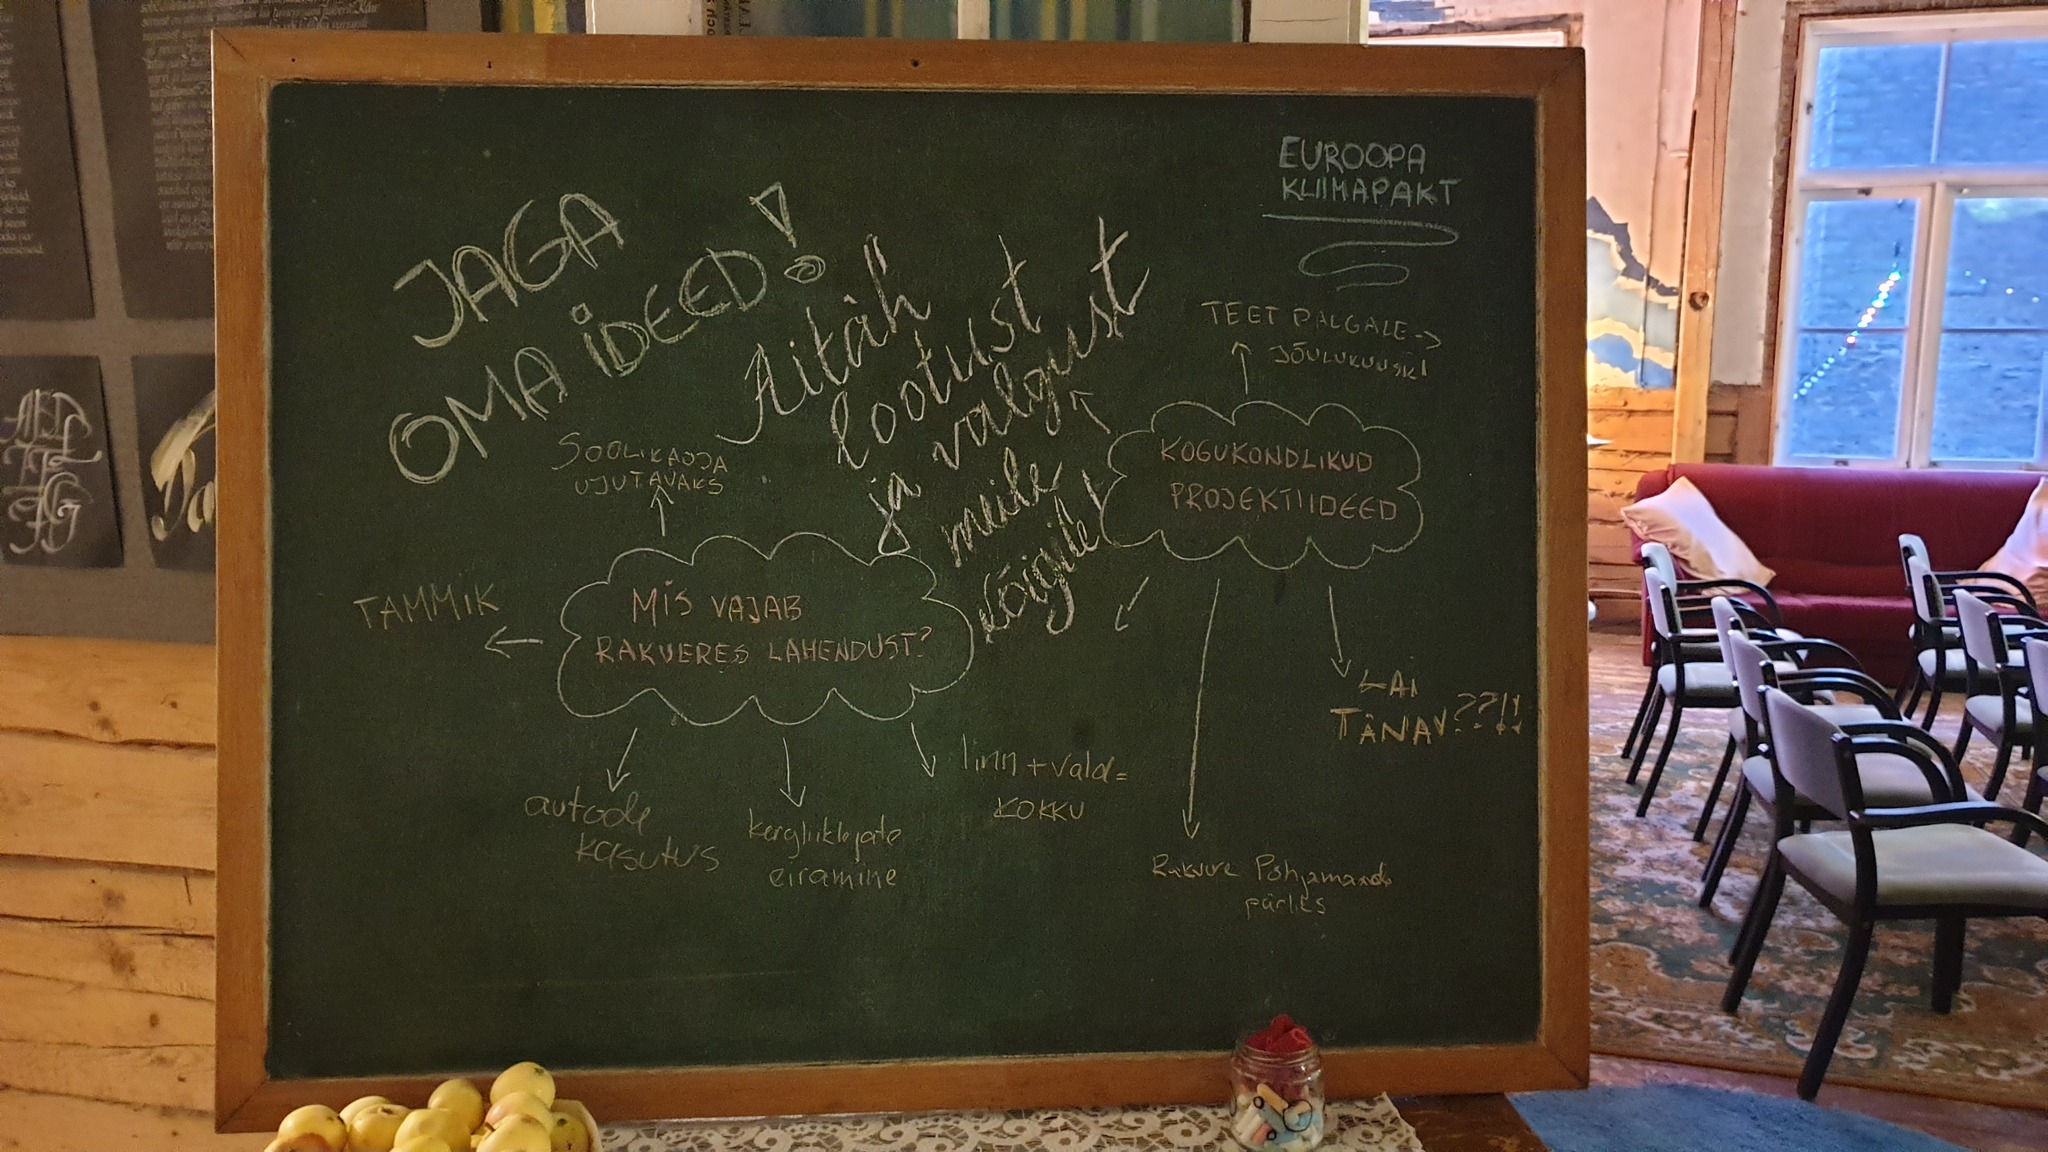 JAGA
OMA IDEED!
Aitäh
lootust
ja valgust
meile
kõigile!
EUROOPA
KLIIMAPAKT
TEET PALGALE →
JÕULUKUUSK!
KOGUKONDLIKUD
PROJEKTIIDEED
SOOLIKAOJA
UJUTAVAKS
TAMMIK
MIS VAJAB
RAKVERES LAHENDUST?
LAI
TÄNAV??!!
autode
kasutus
kergliiklejate
eiramine
linn + vald =
KOKKU
Rakvere Põhjamaade
pärliks